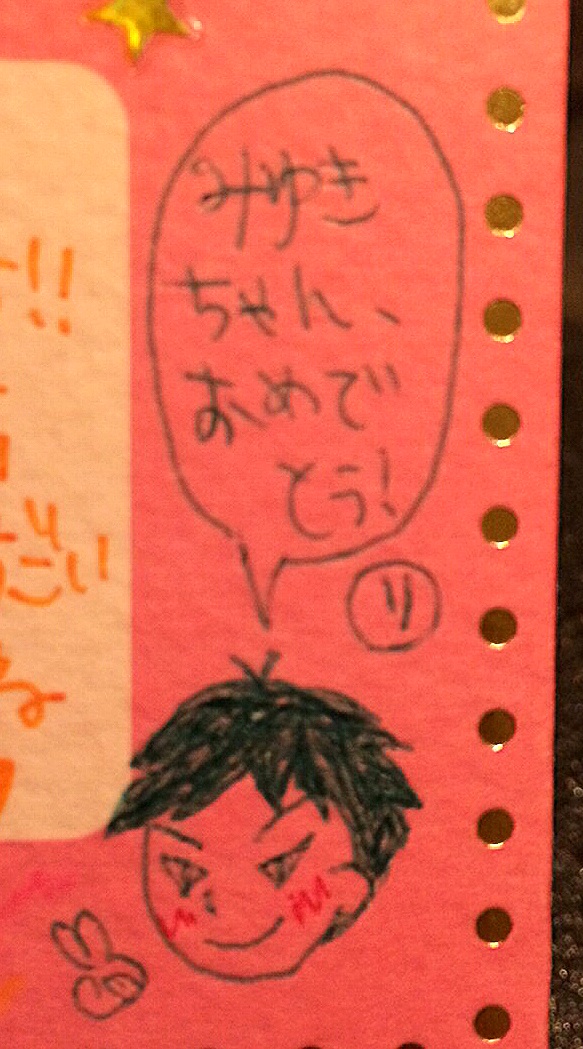 みゆき
ちゃん、
おめで
とう!
リ
!!
ごい